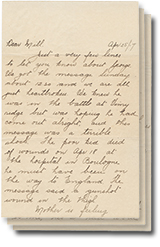 Dear Mell Apr 25/17
Just a very few lines
to let you know about George
We got the message Sunday
about 12.20 and we are all
just heartbroken We knew he
was in the battle at Vimy
ridge but was hoping he had
come out alright but this
message was a terrible
shock. The poor kid died
of wounds on Apr 18 at
the hospital in Boulogne
he must have been on
the way to England. The
message said to gunshot
wound in the thigh
Mother is feeling